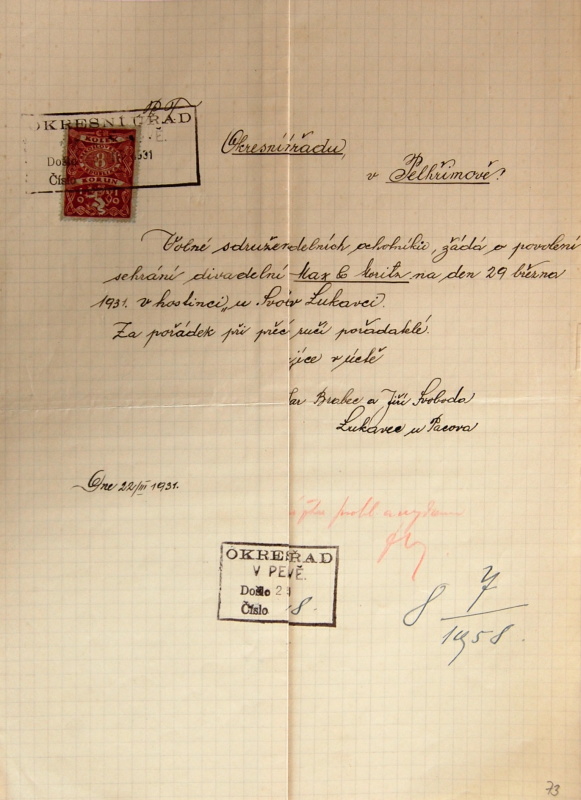 OKRESNÍ ÚŘAD
VĚ.
Došlo 1931
Číslo
KOLEK
3
KORUN
Okresníúřadu,
v Pelhřimově?
Volné sdružendelních ochotníků, žádá o povolení
sehrání divadelní Max & Moritz na den 29 března
1931. v hostinci „u Svov Lukavci.
Za pořádek při přéc ručí pořadatelé.
jíce v úctě
lar Brabec a Jiří Svoboda
Lukavec u Pacova
Dne 22/III 1931.
OKREŘAD
V PEVĚ.
Došlo 2
Číslo 8.
8 7
1958.
73